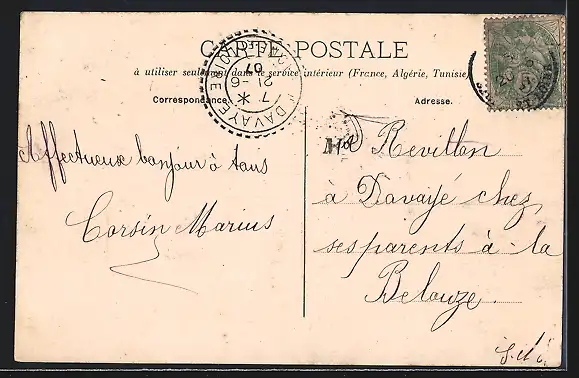 CARTE POSTALE
à utiliser seulement dans le service intérieur (France, Algérie, Tunisie)
Correspondance.
Adresse.
DAVAYÉ
7 * 21-6 07
Affectueux bonjour à tous
Corsin Marius
Revillon
à Davayé chez
ses parents à la
Belouze.
S.-et-L.